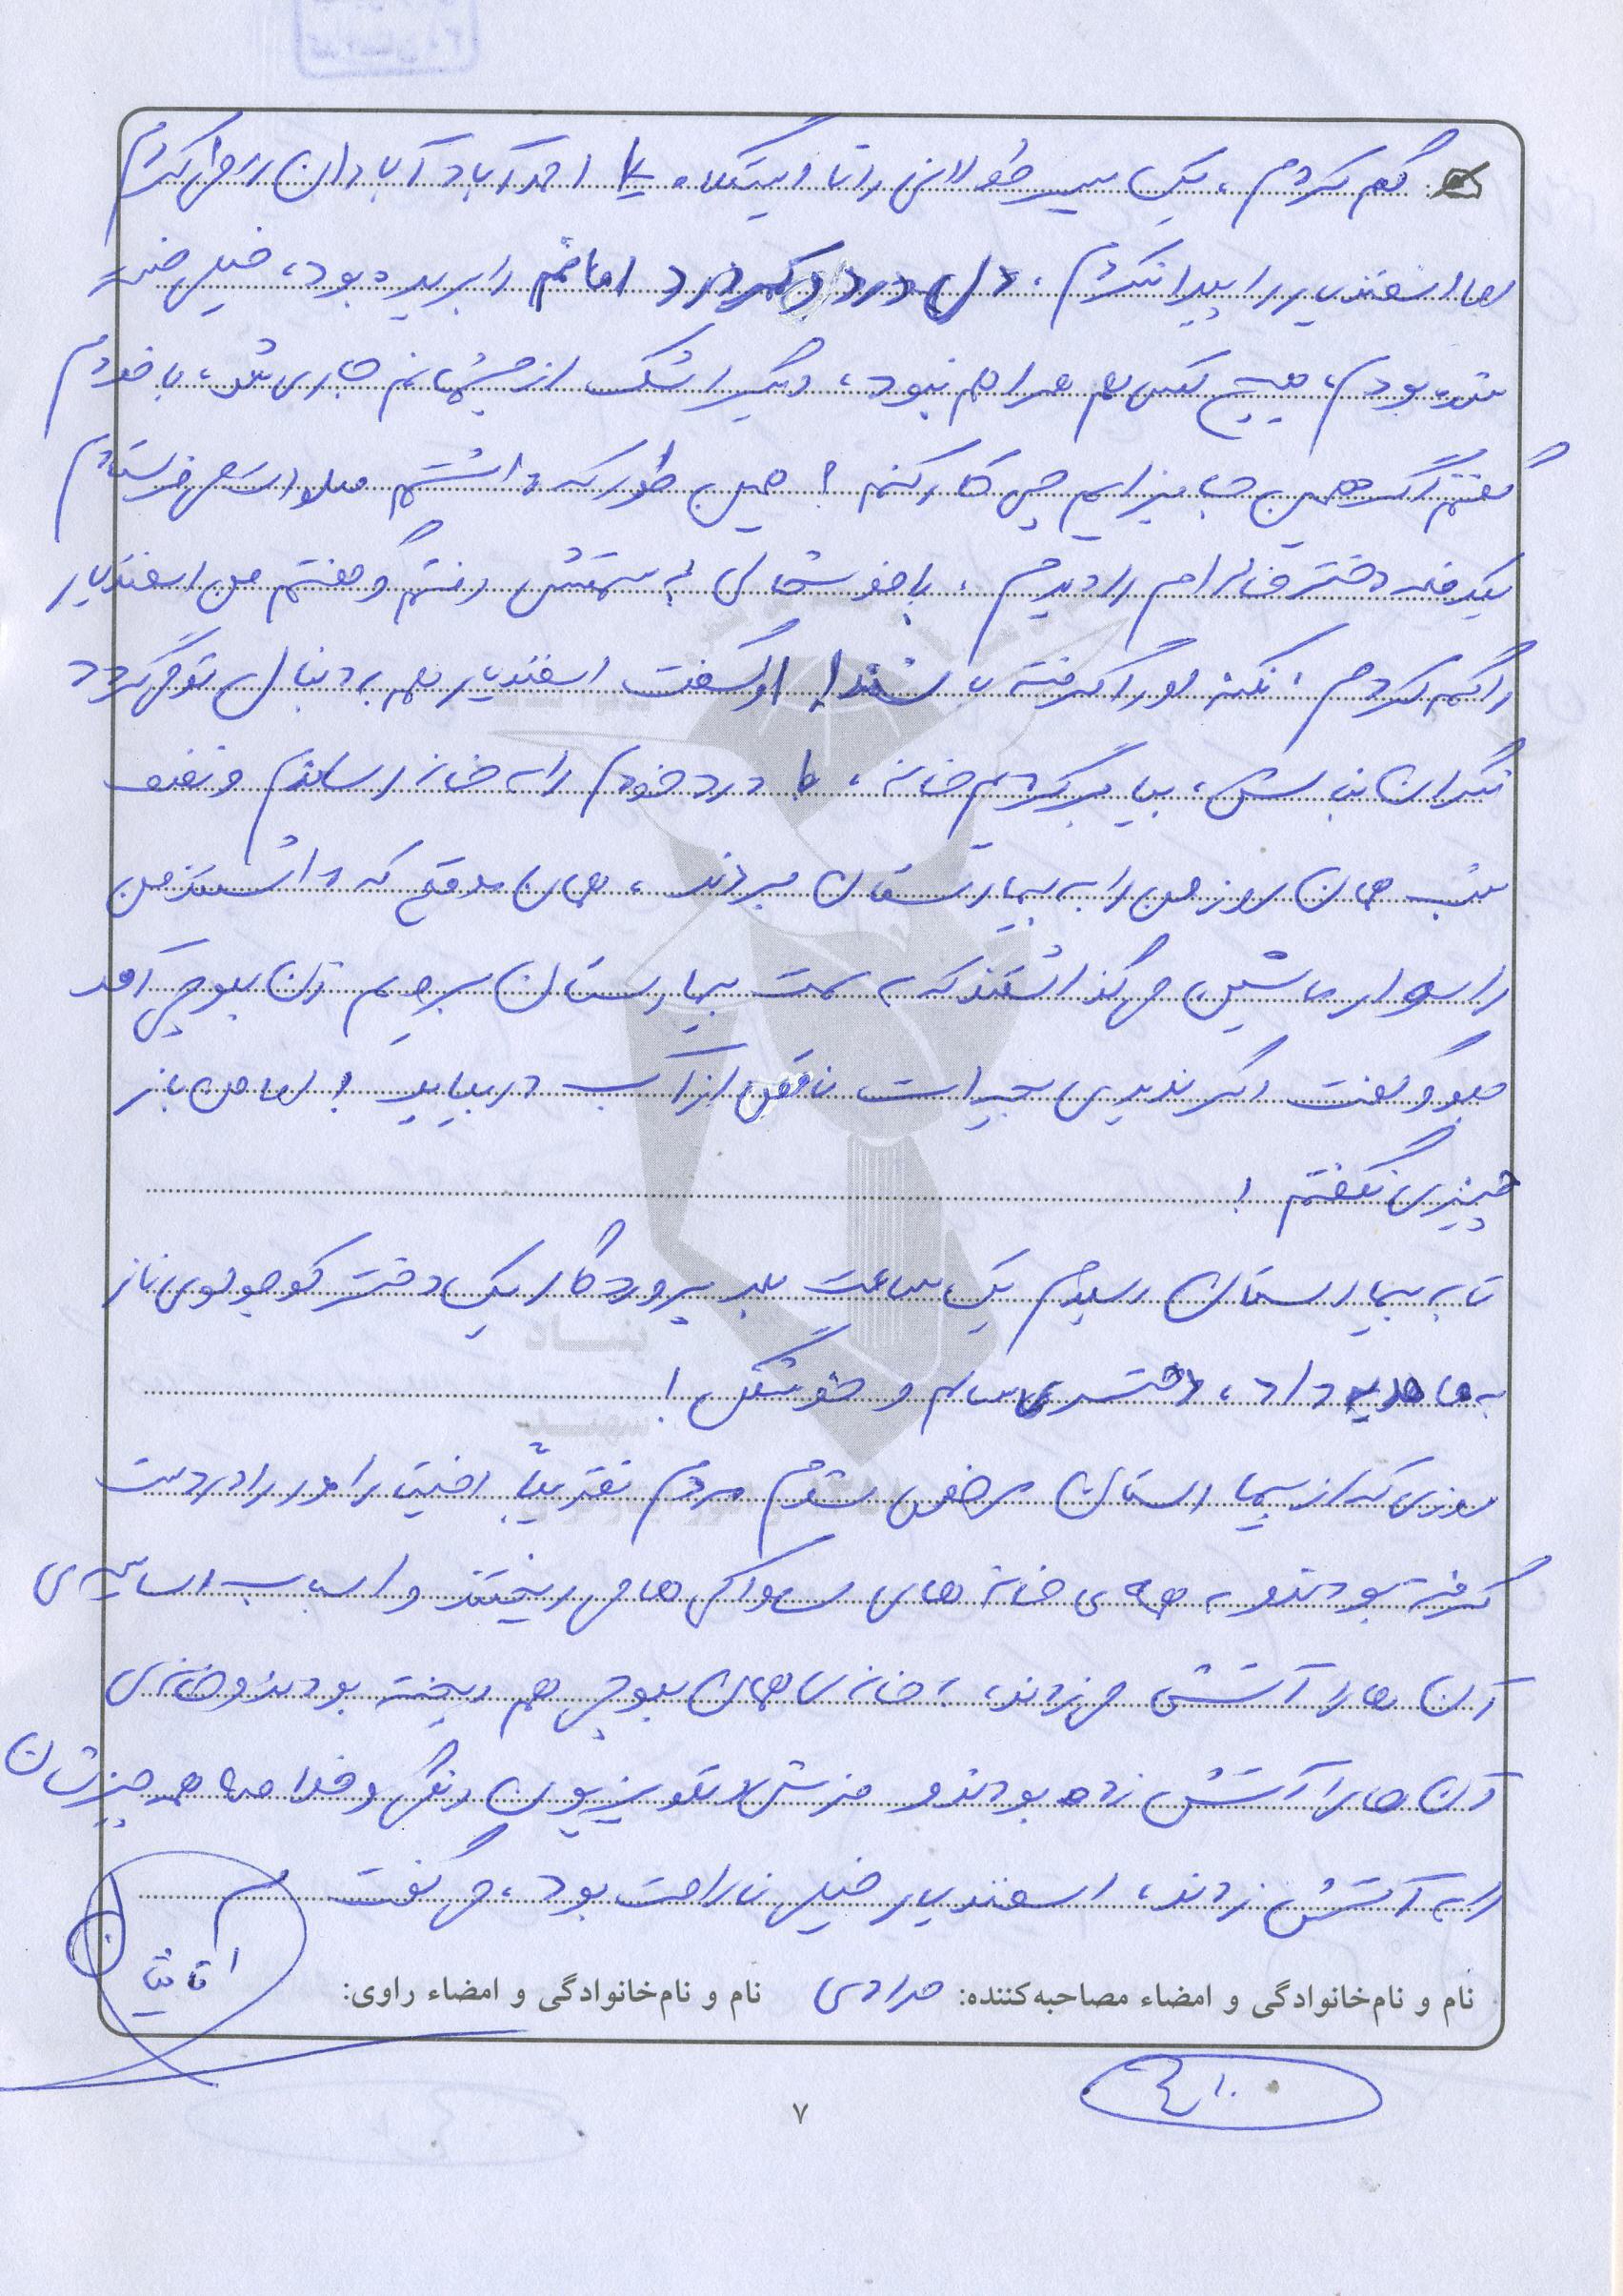 گم کردم، یک مسیر طولانی را تا ایستگاه ۷ احمدآباد آبادان راه می‌رفتم
اما اسفندیار را پیدا نکردم. دل درد و کمردرد امانم را بریده بود، خیلی خسته
شده بودم، هیچ کس هم همراهم نبود، دیگر اشک از چشمانم جاری شد، با خودم
گفتم اگر همین جا بزایم چی کار کنم؟ همین طور که داشتم صلوات می‌فرستادم
یکدفعه دختر خاله‌ام را دیدم، با خوشحالی به سمتش رفتم و گفتم من اسفندیار
را گم کردم، نکنه او را گرفته باشند! او گفت اسفندیار هم به دنبال تو می‌گردد
نگران نباش، بیا برگردیم خانه، با درد خودم را به خانه رساندم و نصف
شب همان روز من را به بیمارستان بردند، همان موقع که داشتند من
را سوار ماشین می‌گذاشتند که به سمت بیمارستان برویم زن بلوچی آمد
جلو و گفت اگر ندیدی بچه‌ات ناقص از آب دربیاید! اما من باز
چیزی نگفتم!
تا به بیمارستان رسیدم یک ساعت بعد پروردگار یک دختر کوچولوی ناز
به ما هدیه داد، دختری سالم و خوشگل!
روزی که از بیمارستان مرخص شدم مردم تقریباً اختیار امور را در دست
گرفته بودند و به همه‌ی خانه‌های ساواکی‌ها می‌ریختند و اسباب اساسیه‌ی
آن‌ها را آتش می‌زدند، به خانه‌ی همان بلوچی هم ریخته بودند و خانه‌ی
آن‌ها را آتش زده بودند و فرش و تلویزیون رنگی و خلاصه همه چیزشان
را به آتش زدند، اسفندیار خیلی ناراحت بود، می‌گفت
نام و نام‌خانوادگی و امضاء مصاحبه‌کننده: مرادی نام و نام‌خانوادگی و امضاء راوی:
۷